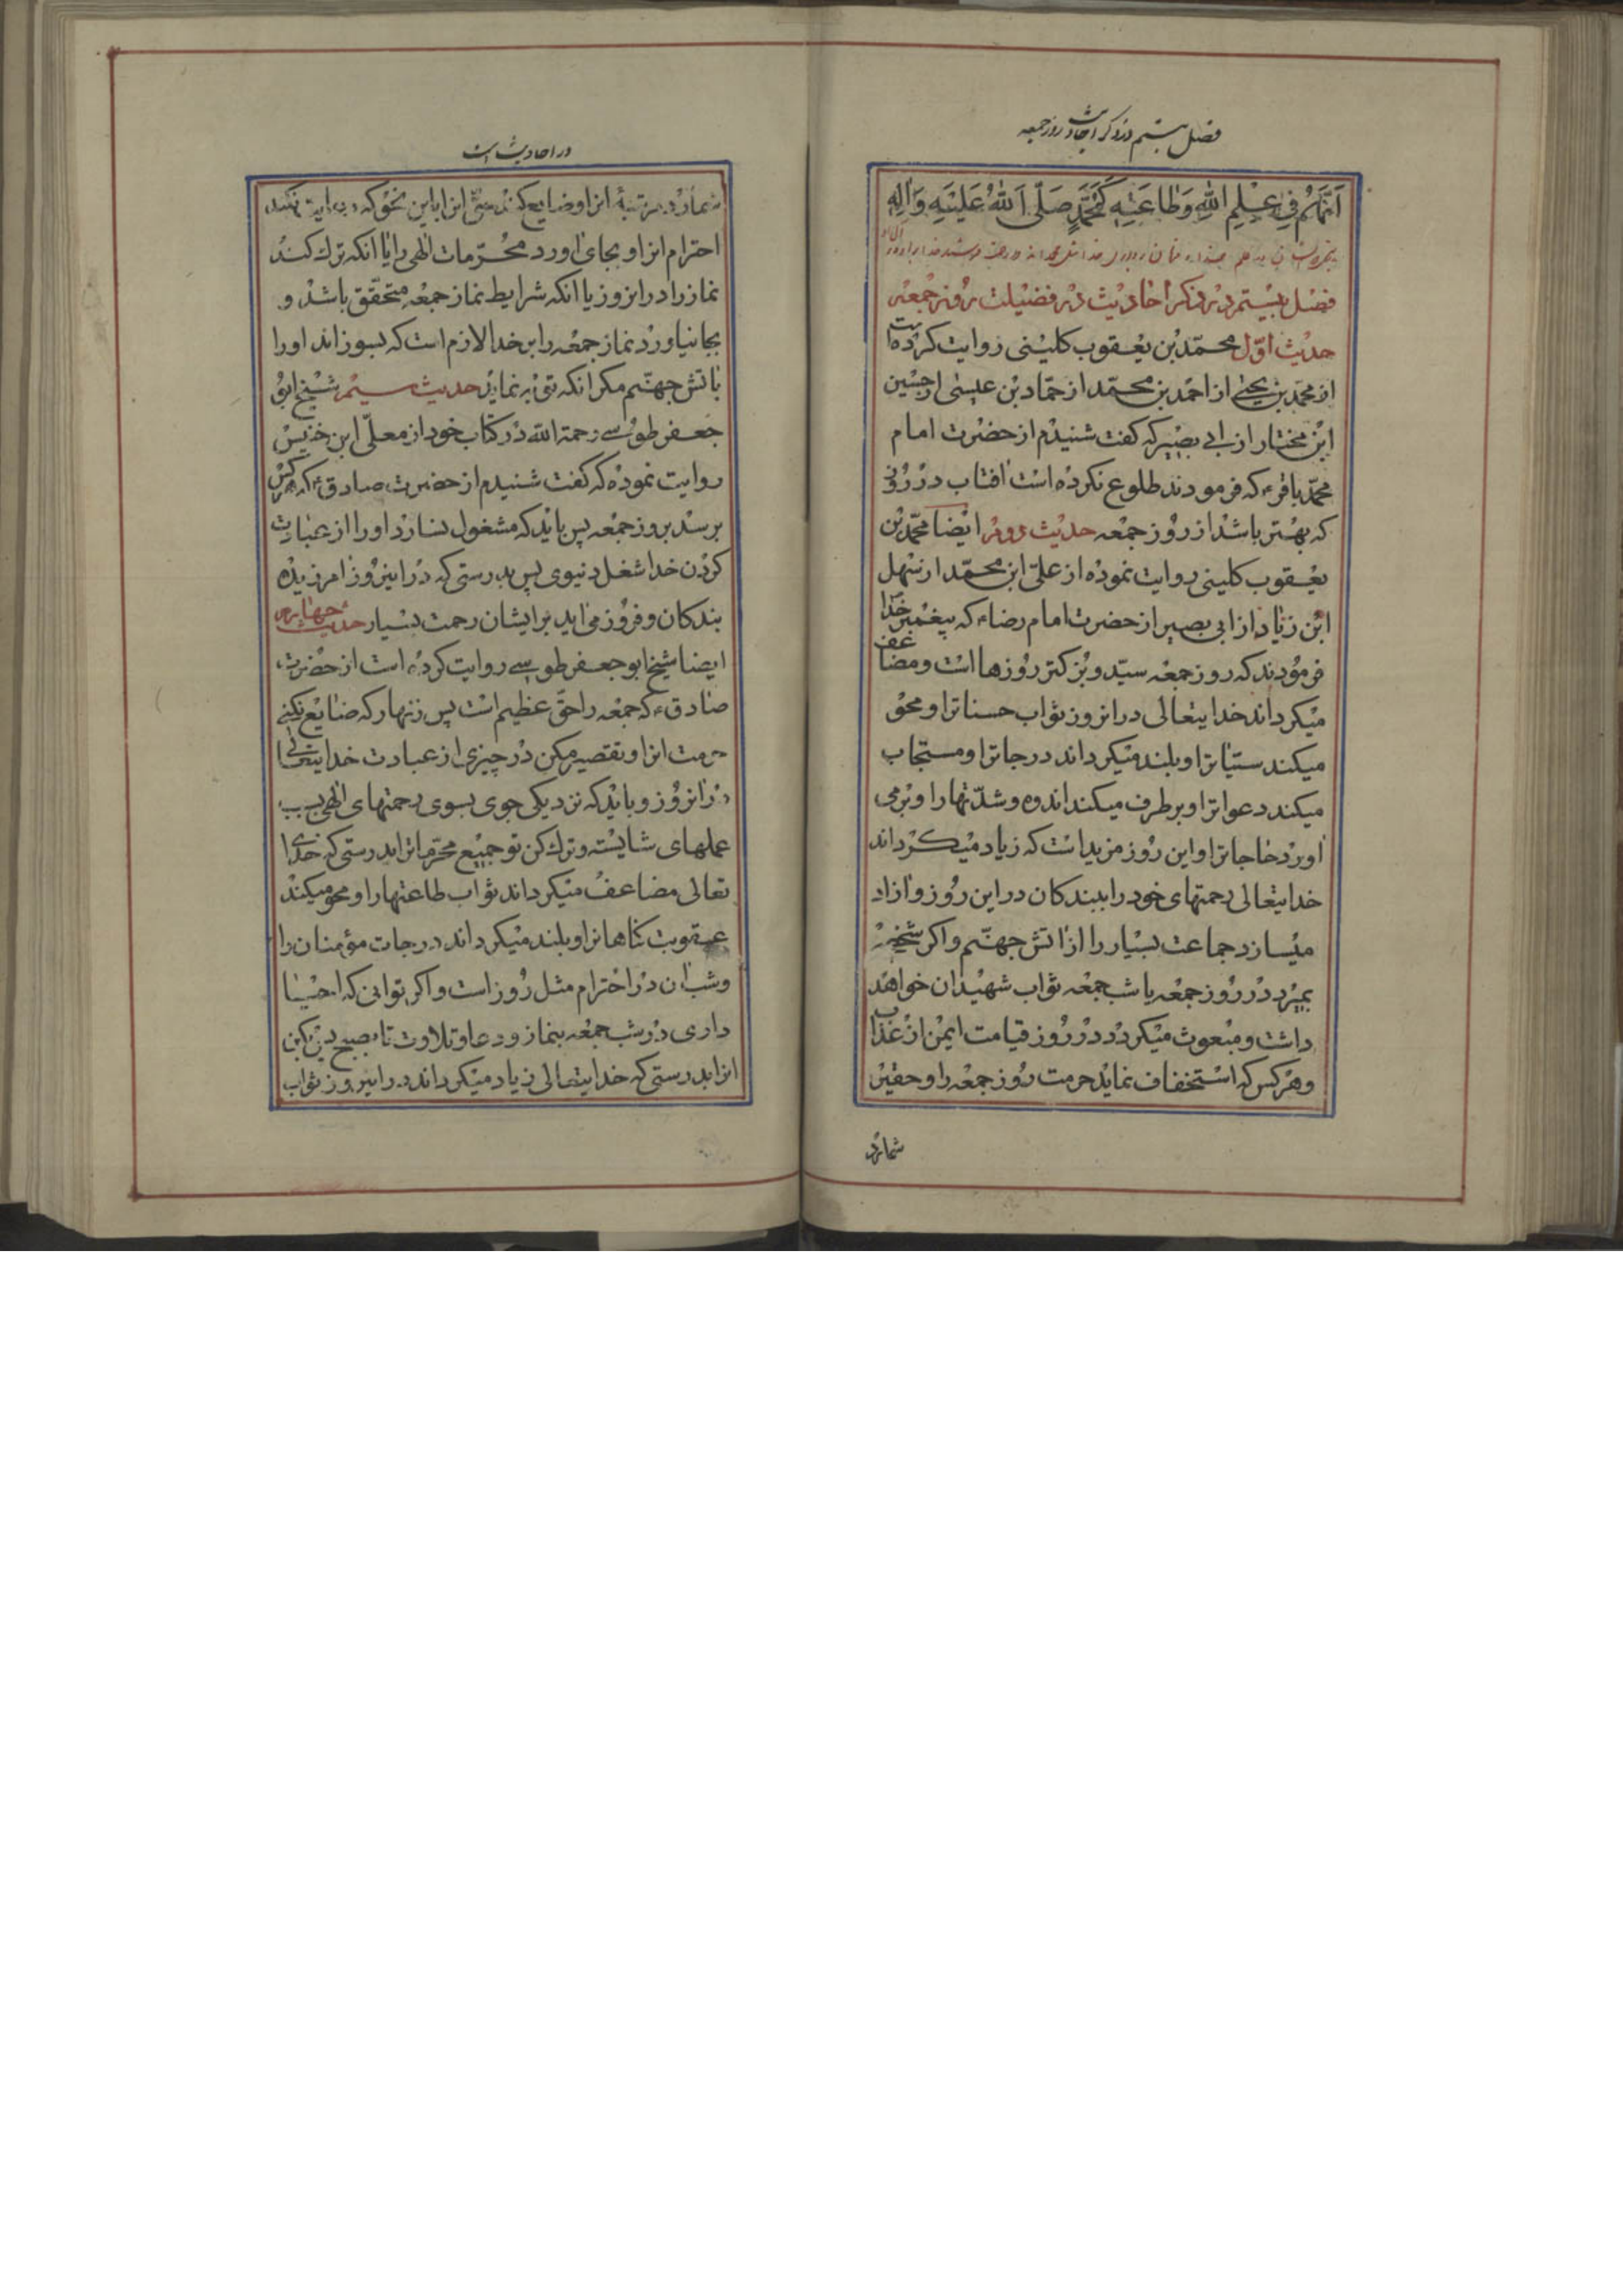 فصل بیستم در ذکر احادیث روز جمعه
اَنَّهُمْ فِی عِلْمِ اللّٰهِ وَطاعَتِهِ کَمُحَمَّدٍ صَلَّی اللّٰهُ عَلَیْهِ وَاٰلِهِ
فصل بیستم در ذکر احادیث در فضیلت روز جمعه
حدیث اوّل محمّد بن یعقوب کلینی روایت کرده است
از محمّد بن یحیی از احمد بن محمّد از حمّاد بن عیسی از حسین
ابن مختار از ابی بصیر که کفت شنیدم از حضرت امام
محمّد باقر ع که فرمودند طلوع نکرده است افتاب در روزی
که بهتر باشد از روز جمعه حدیث دوم ایضا محمّد بن
یعقوب کلینی روایت نموده از علیّ ابن محمّد از سهل
ابن زیاد از ابی بصیر از حضرت امام رضا ع که پیغمبر خدا
فرمودند که روز جمعه سیّد و بزرکتر روزها است و مضاعف
میکرداند خدایتعالی در انروز ثواب حسناترا و محو
میکند سیّئاترا و بلند میکرداند درجاترا و مستجاب
میکند دعواترا و بر طرف میکند اندوه و شدّتها را و بر می
اورد حاجاترا و این روز مزید است که زیاد میکرداند
خدایتعالی رحمتهای خود را ببندکان در این روز و ازاد
میسازد جماعت بسیار را از اتش جهنّم و اکر شخصی
بمیرد در روز جمعه یا شب جمعه ثواب شهیدان خواهد
داشت و مبعوث میکردد در روز قیامت ایمن از عذاب
و هر کس که استخفاف نماید حرمت روز جمعه را و حقیر
شمارد
در احادیث است
شمارد مرتبهٔ انرا و ضایع کند حقّ انرا باین نحو که رعایت نکند
احترام انرا و بجای اورد محرّمات الهی را یا انکه ترک کند
نماز را در انروز یا انکه شرایط نماز جمعه متحقّق باشد و
بجا نیاورد نماز جمعه را بر خدا لازم است که بسوزاند او را
باتش جهنّم مکر انکه توبه نماید حدیث سیم شیخ ابو
جعفر طوسی رحمة اللّه در کتاب خود از معلّی ابن خنیس
روایت نموده که کفت شنیدم از حضرت صادق ع که هر کس
برسد بروز جمعه پس باید که مشغول نسازد او را از عبادت
کردن خدا شغل دنیوی پس بدرستی که در اینروز امرزیده
بندکان و فرود می اید بر ایشان رحمت بسیار حدیث چهارم
ایضا شیخ ابو جعفر طوسی روایت کرده است از حضرت
صادق ع که جمعه را حقّ عظیم است پس زنهار که ضایع نکنی
حرمت انرا و تقصیر مکن در چیزی از عبادت خدایتعالی
در انروز و باید که نزدیکی جوی بسوی رحمتهای الهی بسبب
عملهای شایسته و ترک کن تو جمیع محرّماترا بدرستی که خدای
تعالی مضاعف میکرداند ثواب طاعتها را و محو میکند
عقوبت کناهانرا و بلند میکرداند درجات مؤمنان را
و شب ان در احترام مثل روز است و اکر توانی که احیا
داری در شب جمعه بنماز و دعا و تلاوت تا بصبح بکن
انرا بدرستی که خدایتعالی زیاد میکرداند در اینروز ثواب